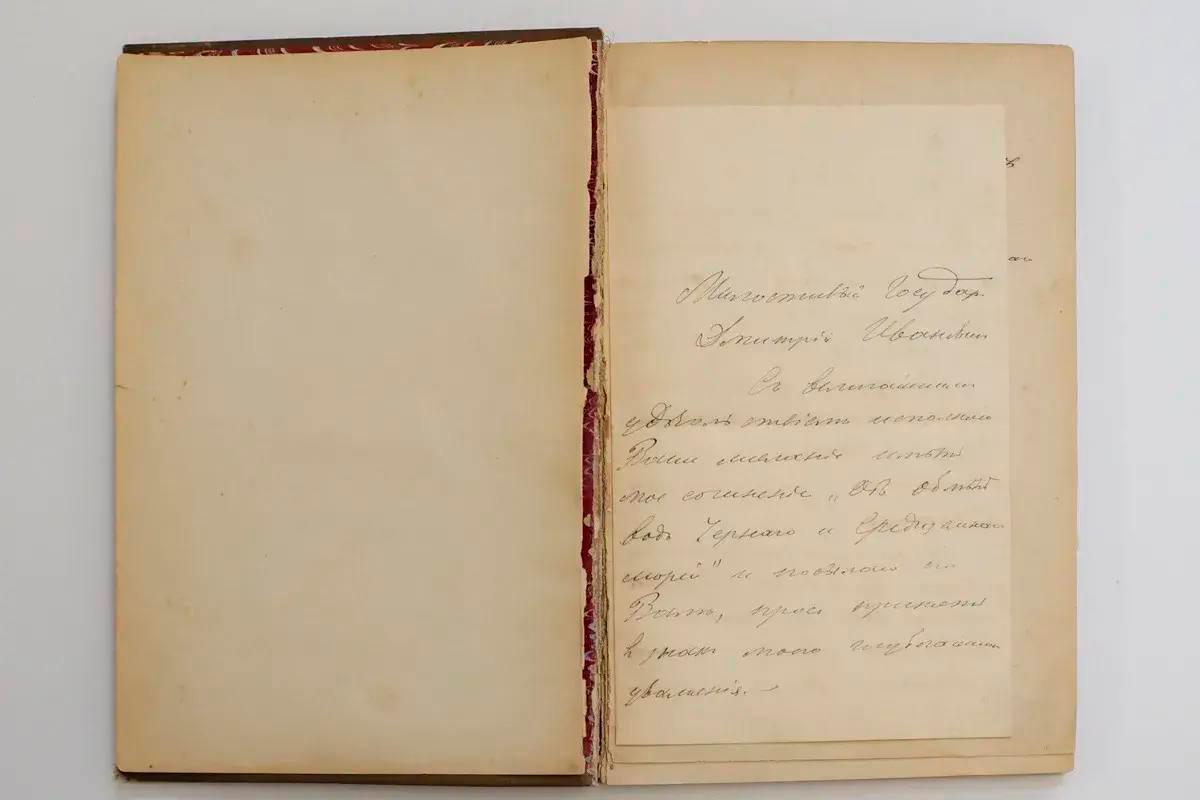 Милостивый Государ.
Дмитрій Ивановичъ
Съ величайшимъ
удовольствіемъ исполняю
Ваше желаніе имѣть
мое сочиненіе „Объ обмѣнѣ
водъ Чернаго и Средиземнаго
морей" и посылаю его
Вамъ, прося принять
въ знакъ моего глубочайшаго
уваженія. —